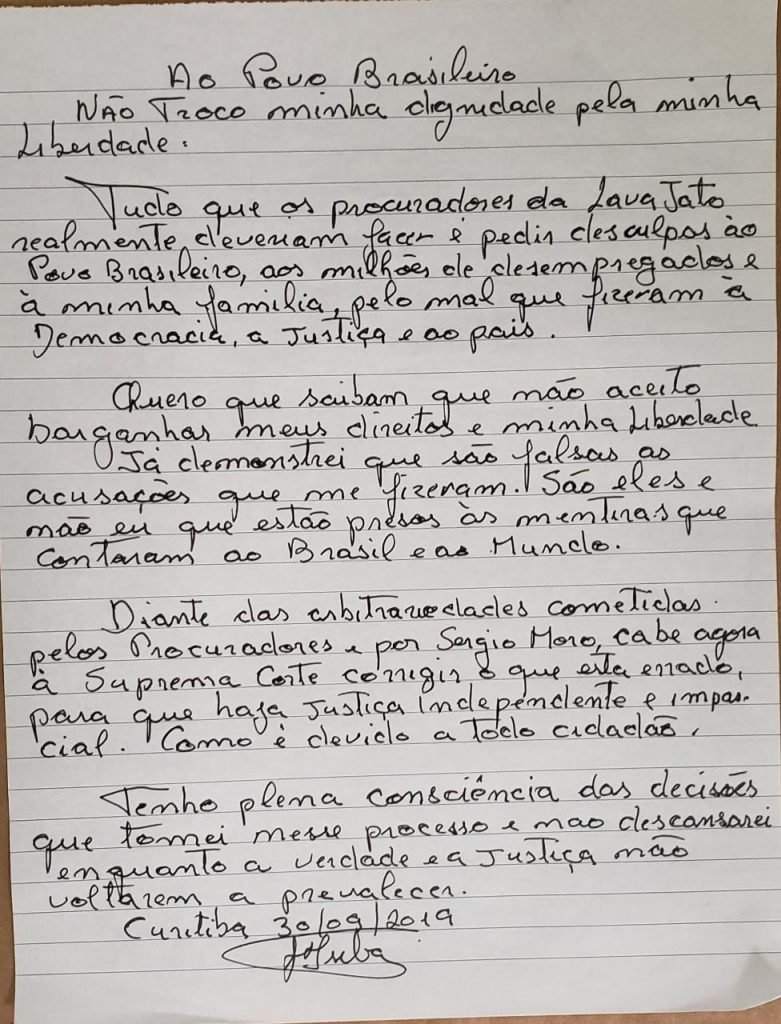 Ao Povo Brasileiro
Não Troco minha dignidade pela minha
Liberdade.
Tudo que os procuradores da Lava Jato
realmente deveriam fazer é pedir desculpas ào
Povo Brasileiro, aos milhões de desempregados e
à minha familia, pelo mal que fizeram à
Democracia, a Justiça e ao pais.
Quero que saibam que não aceito
barganhar meus direitos e minha Liberdade
Já demonstrei que são falsas as
acusações que me fizeram. São eles e
não eu que estão presos às mentiras que
Contaram ao Brasil e ao Mundo.
Diante das arbitrariedades cometidas
pelos Procuradores e por Sergio Moro, cabe agora
à Suprema Corte corrigir o que esta errado,
para que haja Justiça independente e impar-
cial. Como é devido a todo cidadão.
Tenho plena consciência das decisões
que tomei nesse processo e não descansarei
enquanto a verdade e a Justiça não
voltarem a prevalecer.
Curitiba 30/09/2019
Lula